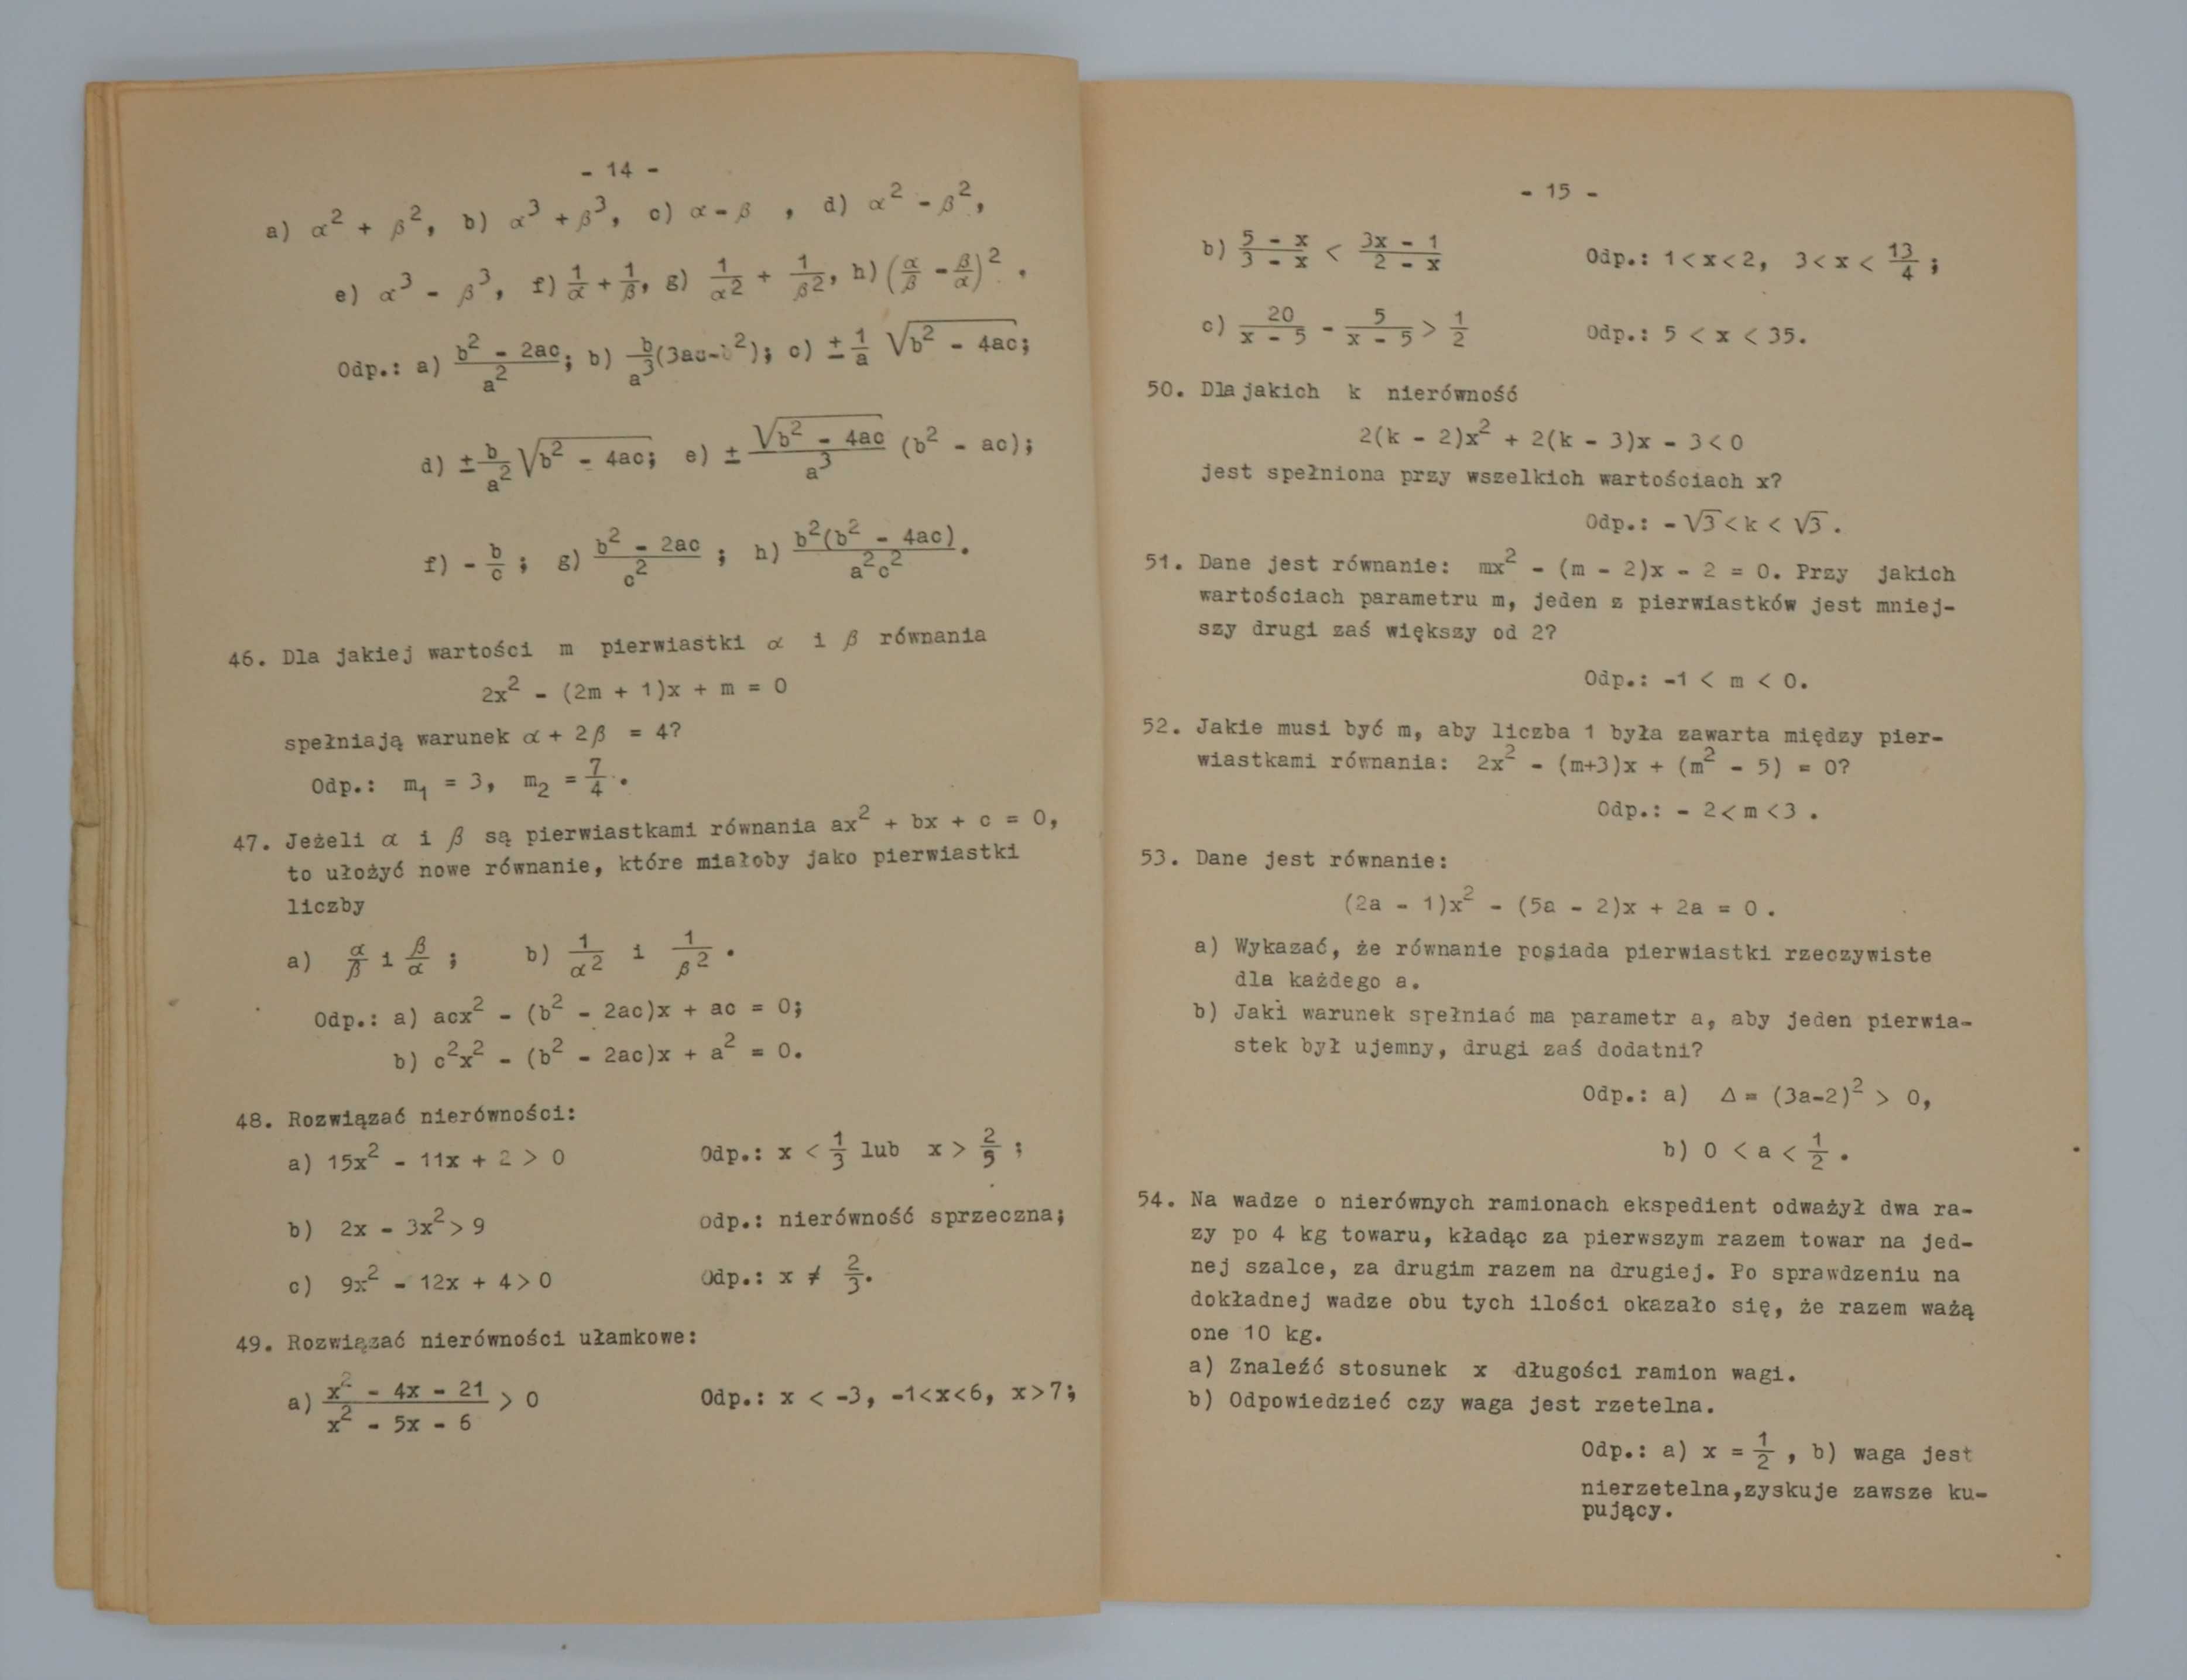 - 14 -
a) α² + β², b) α³ + β³, c) α - β , d) α² - β²,
e) α³ - β³, f) 1/α + 1/β, g) 1/α² + 1/β², h) (α/β - β/α)² .
Odp.: a) (b² - 2ac)/a²; b) b/a³(3ac-b²); c) ± 1/a √(b² - 4ac);
d) ± b/a² √(b² - 4ac); e) ± √(b² - 4ac)/a³ (b² - ac);
f) - b/c ; g) (b² - 2ac)/c² ; h) b²(b² - 4ac)/a²c² .
46. Dla jakiej wartości m pierwiastki α i β równania
2x² - (2m + 1)x + m = 0
spełniają warunek α + 2β = 4?
Odp.: m₁ = 3, m₂ = 7/4 .
47. Jeżeli α i β są pierwiastkami równania ax² + bx + c = 0,
to ułożyć nowe równanie, które miałoby jako pierwiastki
liczby
a) α/β i β/α ; b) 1/α² i 1/β² .
Odp.: a) acx² - (b² - 2ac)x + ac = 0;
b) c²x² - (b² - 2ac)x + a² = 0.
48. Rozwiązać nierówności:
a) 15x² - 11x + 2 > 0 Odp.: x < 1/3 lub x > 2/5 ;
b) 2x - 3x² > 9 Odp.: nierówność sprzeczna;
c) 9x² - 12x + 4 > 0 Odp.: x ≠ 2/3.
49. Rozwiązać nierówności ułamkowe:
a) (x² - 4x - 21)/(x² - 5x - 6) > 0 Odp.: x < -3, -1<x<6, x>7;
- 15 -
b) (5 - x)/(3 - x) < (3x - 1)/(2 - x) Odp.: 1<x<2, 3<x< 13/4 ;
c) 20/(x - 5) - 5/(x - 5) > 1/2 Odp.: 5 < x < 35.
50. Dla jakich k nierówność
2(k - 2)x² + 2(k - 3)x - 3 < 0
jest spełniona przy wszelkich wartościach x?
Odp.: - √3 < k < √3 .
51. Dane jest równanie: mx² - (m - 2)x - 2 = 0. Przy jakich
wartościach parametru m, jeden z pierwiastków jest mniej-
szy drugi zaś większy od 2?
Odp.: -1 < m < 0.
52. Jakie musi być m, aby liczba 1 była zawarta między pier-
wiastkami równania: 2x² - (m+3)x + (m² - 5) = 0?
Odp.: - 2 < m < 3 .
53. Dane jest równanie:
(2a - 1)x² - (5a - 2)x + 2a = 0 .
a) Wykazać, że równanie posiada pierwiastki rzeczywiste
dla każdego a.
b) Jaki warunek spełniać ma parametr a, aby jeden pierwia-
stek był ujemny, drugi zaś dodatni?
Odp.: a) Δ = (3a-2)² > 0,
b) 0 < a < 1/2 .
54. Na wadze o nierównych ramionach ekspedient odważył dwa ra-
zy po 4 kg towaru, kładąc za pierwszym razem towar na jed-
nej szalce, za drugim razem na drugiej. Po sprawdzeniu na
dokładnej wadze obu tych ilości okazało się, że razem ważą
one 10 kg.
a) Znaleźć stosunek x długości ramion wagi.
b) Odpowiedzieć czy waga jest rzetelna.
Odp.: a) x = 1/2 , b) waga jest
nierzetelna,zyskuje zawsze ku-
pujący.